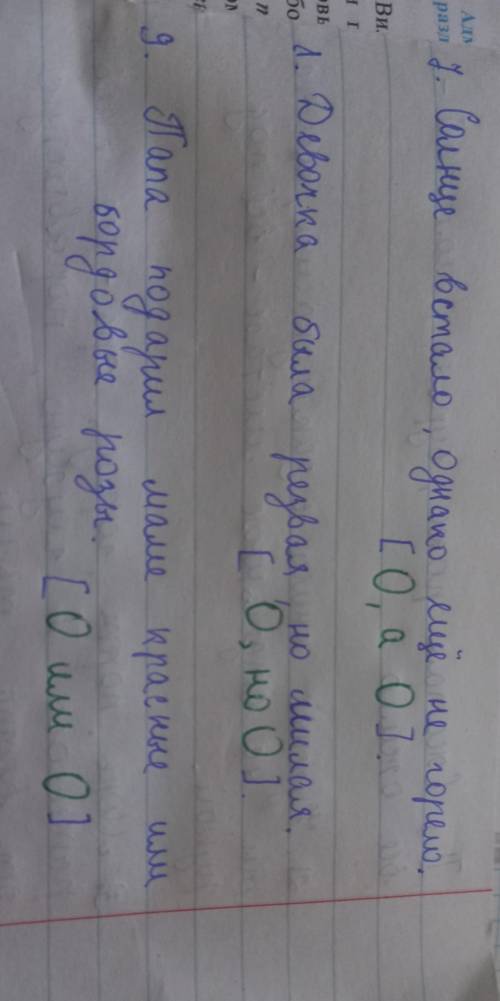 7. Солнце встало, однако ещё не горело.
[О, а О].
8. Девочка была резвая, но милая.
[О, но О].
9. Папа подарил маме красные или
бордовые розы. [О или О]